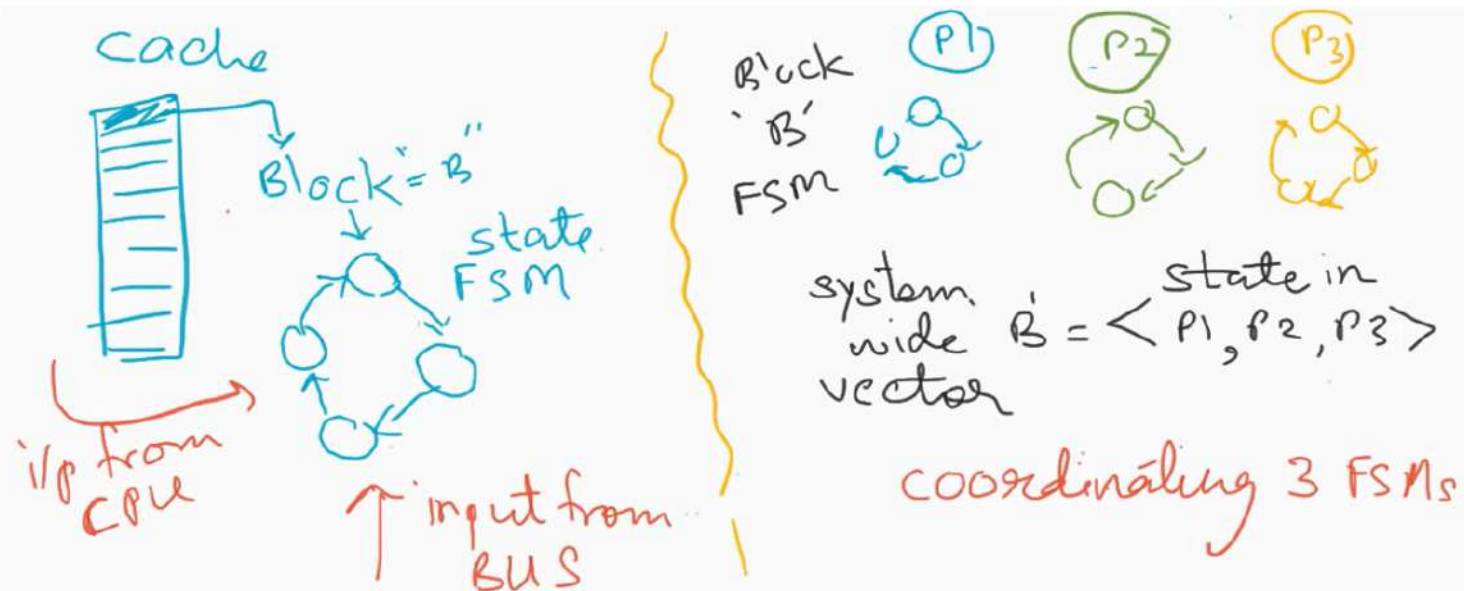 cache
Block = "B"
state
FSM
i/p from
CPU
input from
BUS
Block
'B'
FSM
P1
P2
P3
system
wide
vector
B = < state in
P1, P2, P3 >
coordinating 3 FSMs